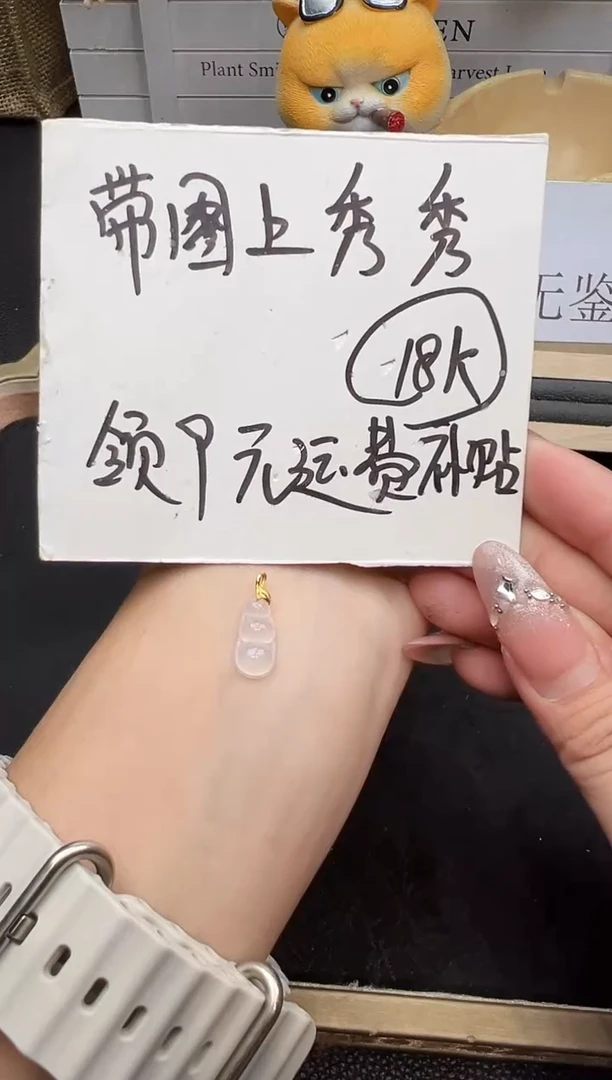 EN
Plant Smi
arvest
无鉴
带图上秀秀
18K
领9元运费补贴